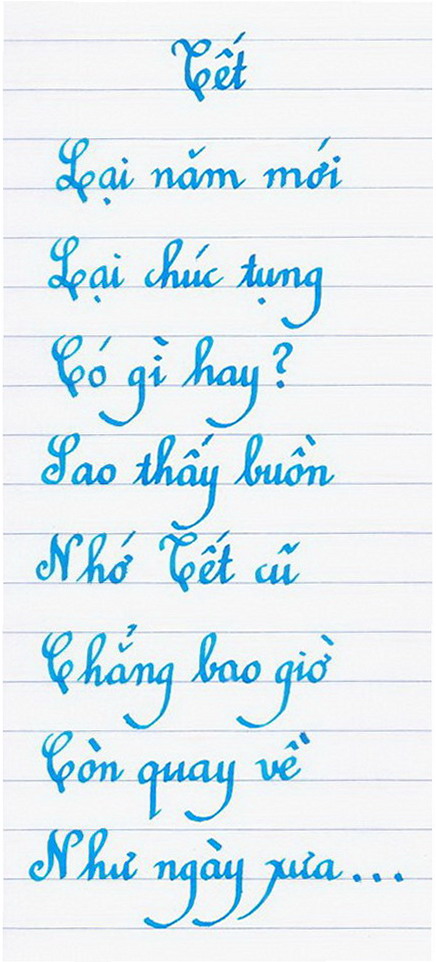 Tết
Lại năm mới
Lại chúc tụng
Có gì hay?
Sao thấy buồn
Nhớ Tết cũ
Chẳng bao giờ
Còn quay về
Như ngày xưa...